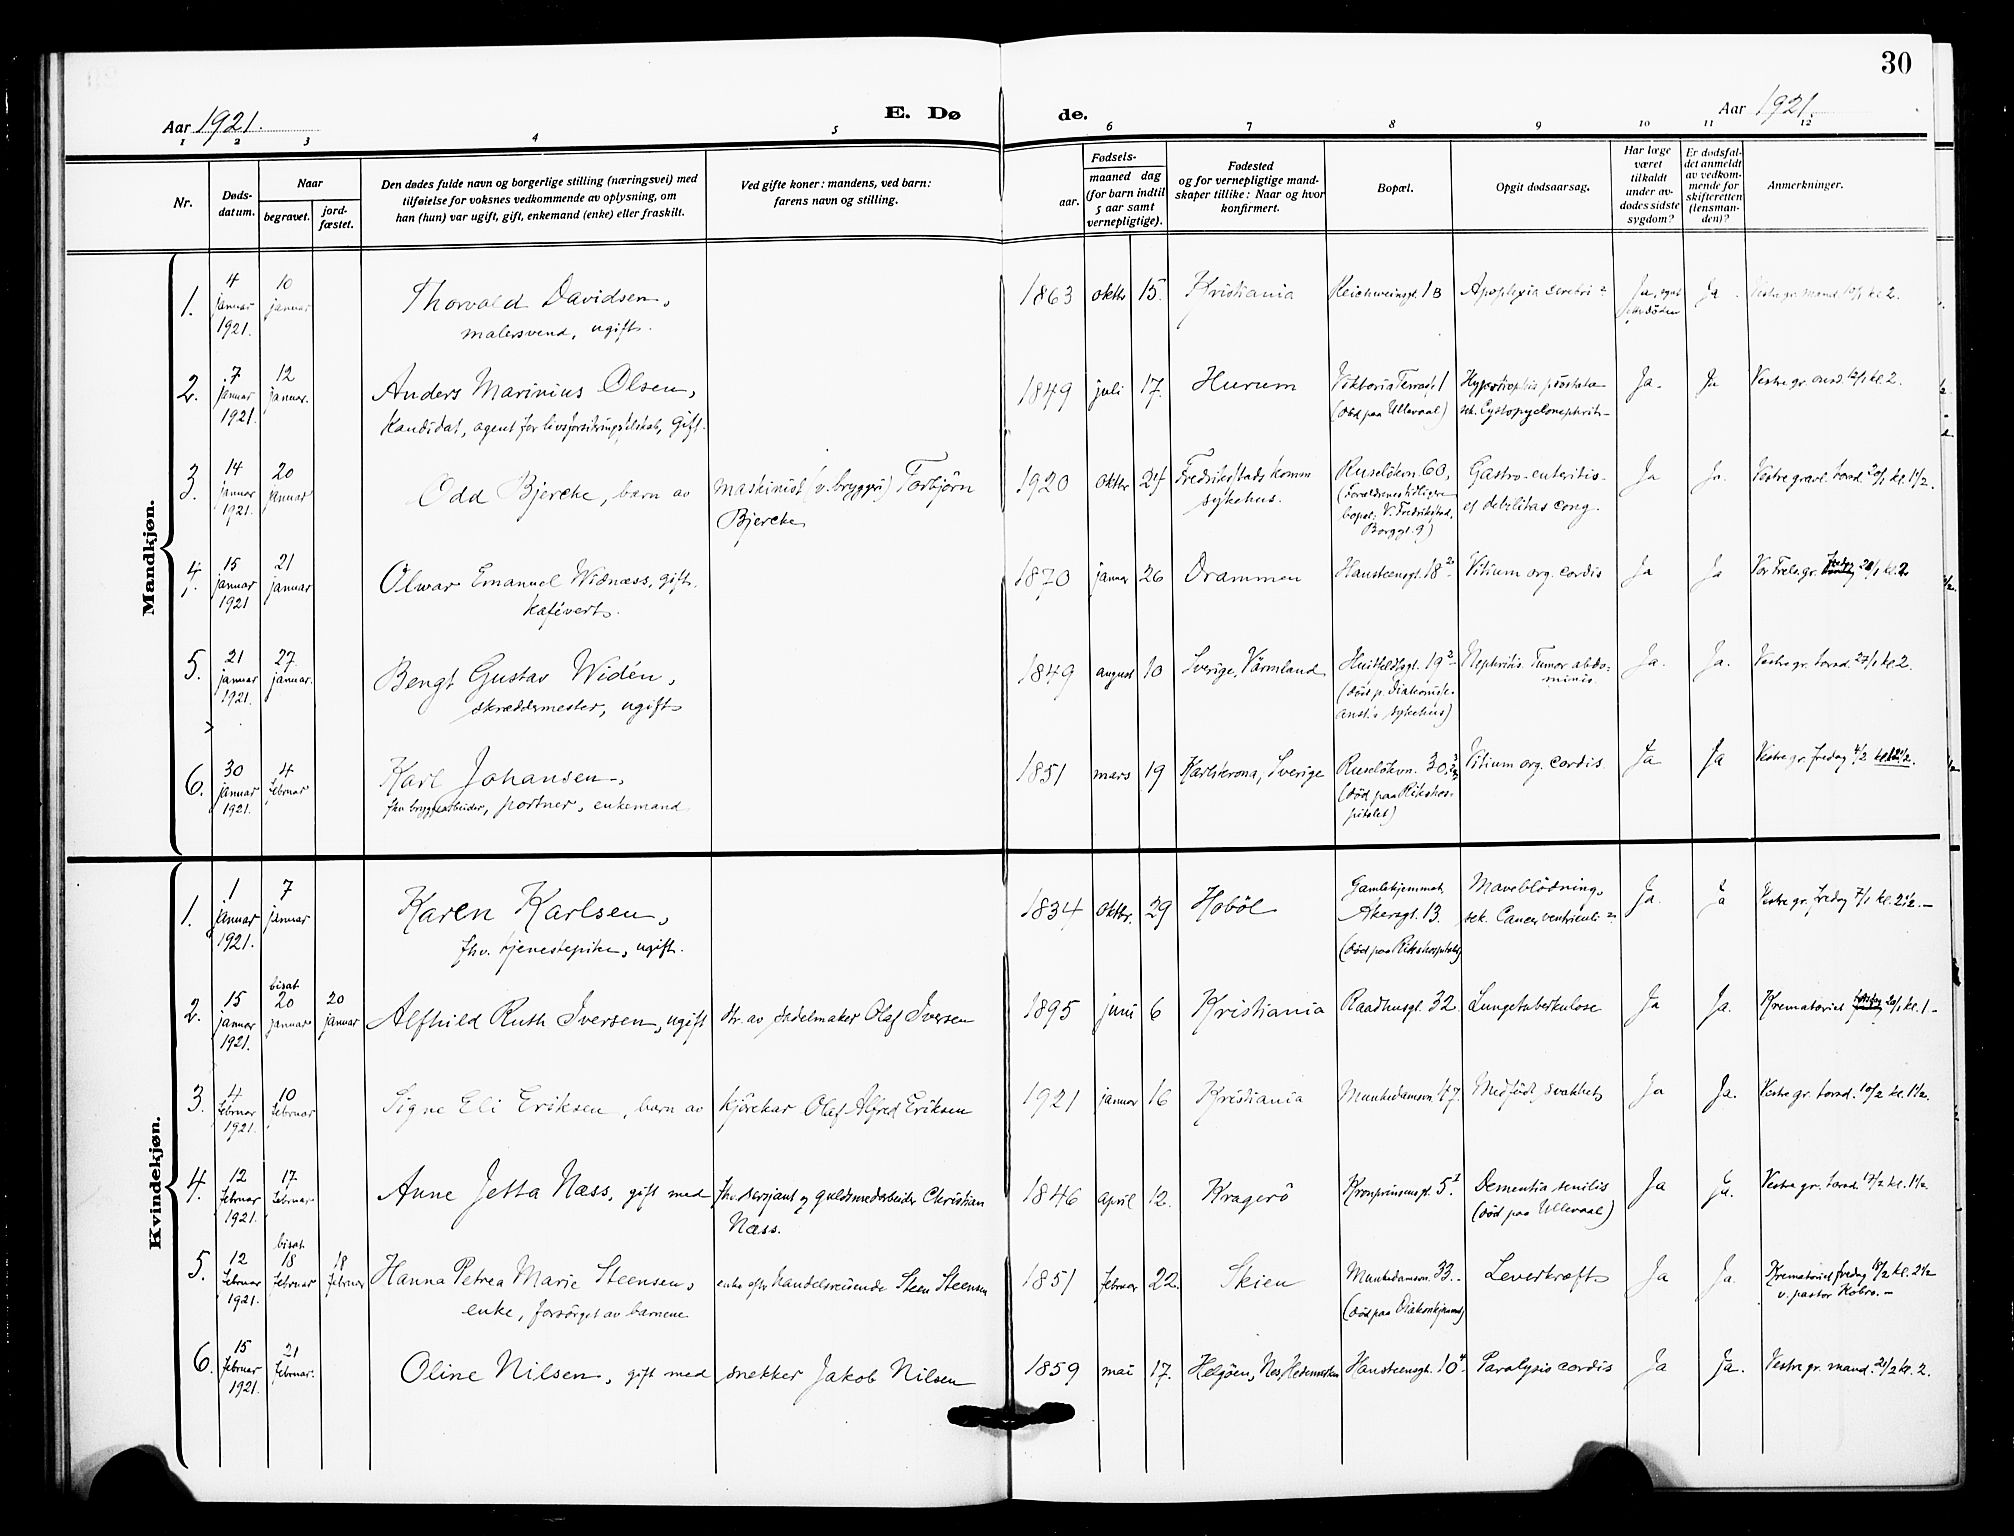 30
Aar 1921.
E. Dø
de.
Aar 1921.
1 2 3 4 5 6 7 8 9 10 11 12
Nr.
Døds-
datum.
Naar
begravet.
jord-
fæstet.
Den dødes fulde navn og borgerlige stilling (næringsvei) med
tilføielse for voksnes vedkommende av oplysning, om
han (hun) var ugift, gift, enkemand (enke) eller fraskilt.
Ved gifte koner: mandens, ved barn:
farens navn og stilling.
Fødsels-
aar.
maaned dag
(for barn indtil
5 aar samt
vernepligtige).
Fødested
og for vernepligtige mand-
skaper tillike: Naar og hvor
konfirmert.
Bopæl.
Opgit dødsaarsag.
Har læge
været
tilkaldt
under av-
dødes sidste
sygdom?
Er dødsfal-
det anmeldt
av vedkom-
mende for
skifteretten
(lensman-
den)?
Anmerkninger.
Mandkjøn.
1.
4
januar
1921.
10
januar
Thorvald Davidsen,
malersvend, ugift.
1863 oktbr 15. Kristiania
Reichweinsgt. 1B
Apoplexia cerebri
Ja, synt
før døden
Ja.
Vestre gr. mand. 10/1 kl. 2.
2.
7
januar
1921.
12
januar.
Anders Marinius Olsen,
Kandidat, agent for livsforsikringsselskab, gift.
1849 juli 17. Hurum
Viktoria Terrasse 1
(død paa Ullevaal)
Hypertrophia prostatae
sek. Cystopyelonephrit-
Ja.
Ja
Vestre gr. onsd. 12/1 kl. 2.
3.
14
januar
1921.
20
januar
Odd Bjercke, barn av
maskinist (v. bryggeri) Torbjörn
Bjercke
1920 oktbr 24
Fredrikstads komm
sykehus.
Ruseløkvn. 60,
(Forældrenes tidligere
bopæl: V. Fredrikstad,
Borggt. 9)
Gastro-enteritis
et debilitas cong.
Ja
Ja.
Vestre gravl. torsd. 20/1 kl. 1 1/2.
4.
15
januar
1921
21
januar
Olwar Emanuel Widnæss, gift.
kafévert.
1870 januar 26 Drammen
Hansteensgt. 18 2
Vitium org. cordis
Ja
Ja
Vor Frels. gr. fredag 21/1 kl. 2
5.
21
januar
1921.
27
januar.
Bengt Gustav Widén,
skræddermester, ugift
1849 august 10 Sverige, Värmland
Huitfeldtsgt. 19 2
(død p. Diakonisse-
anst.s sykehus)
Nephritis. Tumor abdo-
minis.
Ja.
Ja.
Vestre gr. torsd. 27/1 kl. 2.
6.
30
januar
1921.
4
februar
Karl Johansen,
fhv. bryggearbeider, portner, enkemand
1851 mars 19 Karlskrona, Sverige
Ruseløkvn. 30
(død paa Rikshos-
pitalet)
Vitium org. cordis
Ja
Ja
Vestre gr. fredag 4/2 kl. 2 1/2.
Kvindekjøn.
1.
1
januar
1921.
7
januar
Karen Karlsen,
fhv. tjenestepike, ugift.
1834 oktbr. 29 Hobøl
Gamlehjemmet
Akersgt. 13.
(død paa Rikshospitalet)
Maveblödning,
sek. Cancer ventriculi
Ja.
Ja
Vestre gr. fredag 7/1 kl. 2 1/2.-
2.
15
januar
1921.
bisat
20
januar
20
januar
Alfhild Ruth Iversen, ugift
dtr. av sadelmaker Olaf Iversen
1895 juni 6 Kristiania
Raadhusgt. 32.
Lungetuberkulose
Ja
Ja.
Krematoriet torsdag 20/1 kl. 1-
3.
4
februar
1921.
10
februar
Signe Eli Eriksen, barn av
kjörekar Olaf Alfred Eriksen
1921 januar 16 Kristiania
Munkedamsvn. 47.
Medfødt svakhet
Ja
Ja.
Vestre gr. torsd. 10/2 kl. 1 1/2.
4.
12
februar
1921.
17
februar
Anne Jetta Næss, gift med
fhv. sersjant og guldsmedarbeider Christian
Næss.
1846 april 12. Kragerö
Kronprinsensgt. 5.
Dementia senilis
(død paa Ullevaal)
Ja
Ja.
Vestre gr. torsd. 17/2 kl. 1 1/2.
5.
12
februar
1921.
bisat
18
februar
18
februar
Hanna Petrea Marie Steensen,
enke, forsörget av barnene
enke efter handelsreisende Steen Steensen
1851 februar 22. Skien
Munkedamsvn. 33.-
(død paa Diakonhjemmet)
Leverkræft
Ja
Ja.
Krematoriet fredag 18/2 kl. 2 1/2
v. pastor Kobro.-
6.
15
februar
1921.
21
februar.
Oline Nilsen, gift med
snekker Jakob Nilsen
1859 mai 17. Helgöen, Nes, Hedemarken
Hansteensgt. 10 4
Paralysis cordis
Ja
Ja.
Vestre gr. mand. 21/2 kl. 2.